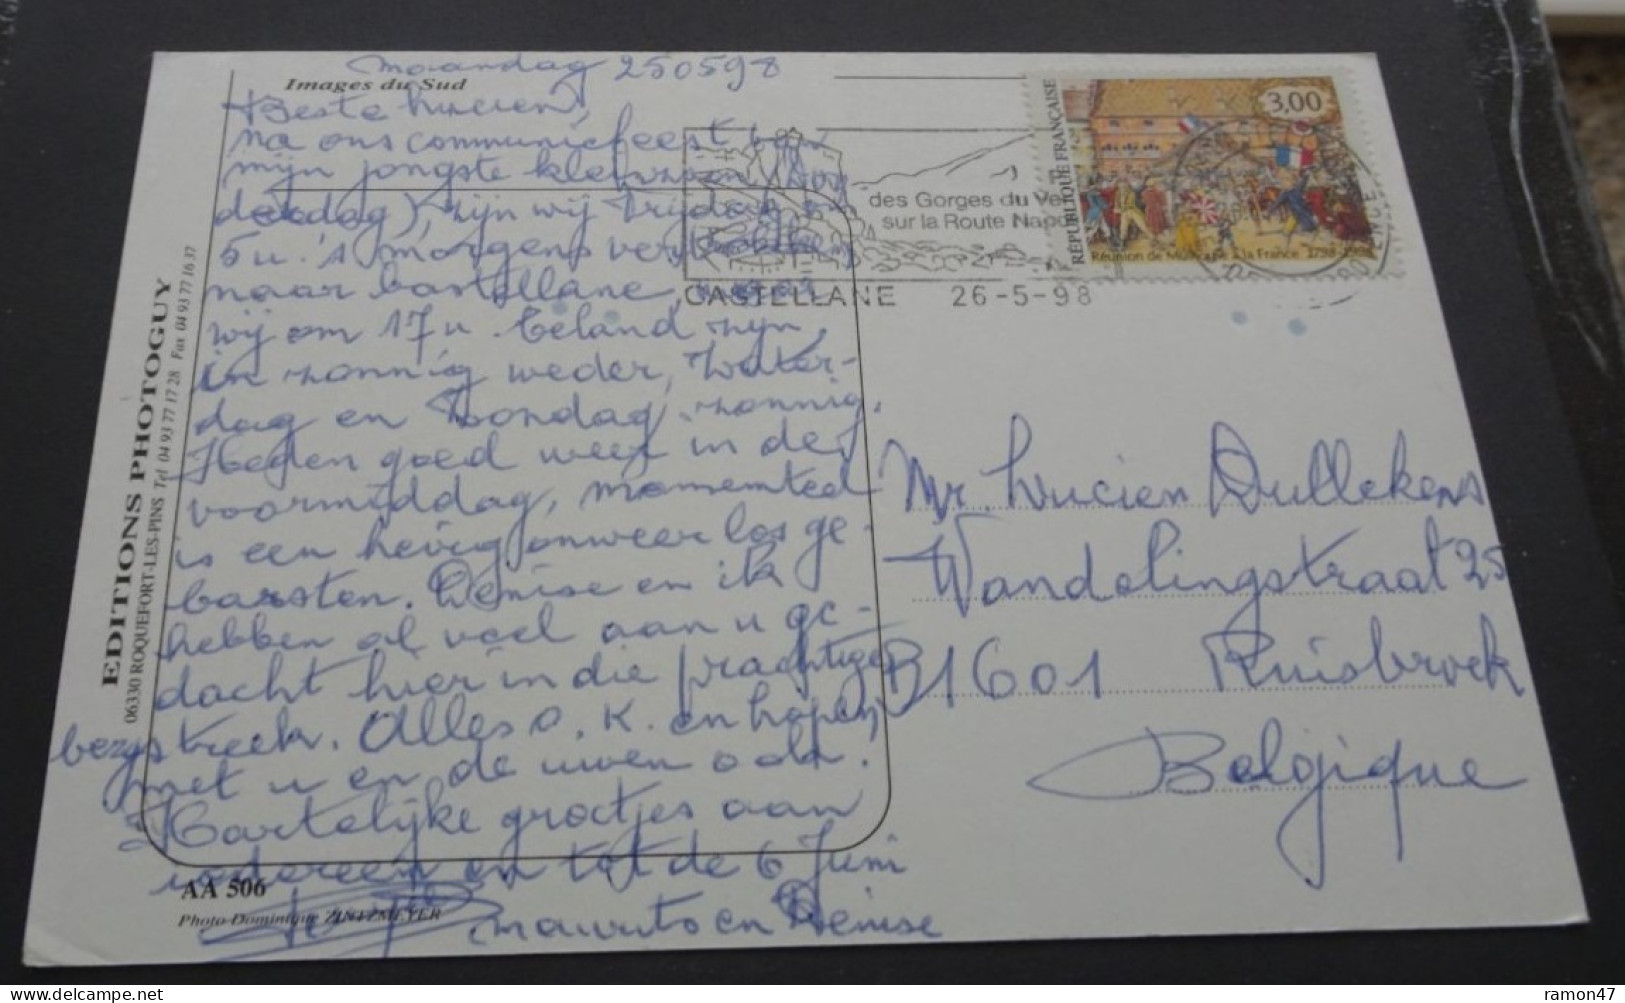 Images du Sud
Maandag 250598
Beste Lucien,
na ons communiefeest van
mijn jongste kleinzoon
zijn wij vrijdag om
5u. 's morgens vertrokken
naar Castellane, waar
wij om 17u. beland zijn,
in zonnig weder, Zater-
dag en Zondag zonnig.
Heden goed weer in de
voormiddag, momenteel
is een hevig onweer los ge-
barsten. Denise en ik
hebben al veel aan u ge-
dacht hier in die prachtige
bergstreek. Alles O.K. en hopen
met u en de uwen ook.
Hartelijke groetjes aan
iedereen en tot de 6 Juni
en Denise
EDITIONS PHOTOGUY
06330 ROQUEFORT-LES-PINS Tel 04 93 77 17 28 Fax 04 93 77 16 37
AA 506
Photo-Dominique ZINTZMEYER
des Gorges du Ver
sur la Route Napo
CASTELLANE 26-5-98
RÉPUBLIQUE FRANÇAISE
3,00
Réunion de Mulhouse à la France 1798-1998
Mr. Lucien Dullekens
Wandelingstraat 25
B1601 Ruisbroek
Belgique
ramon47